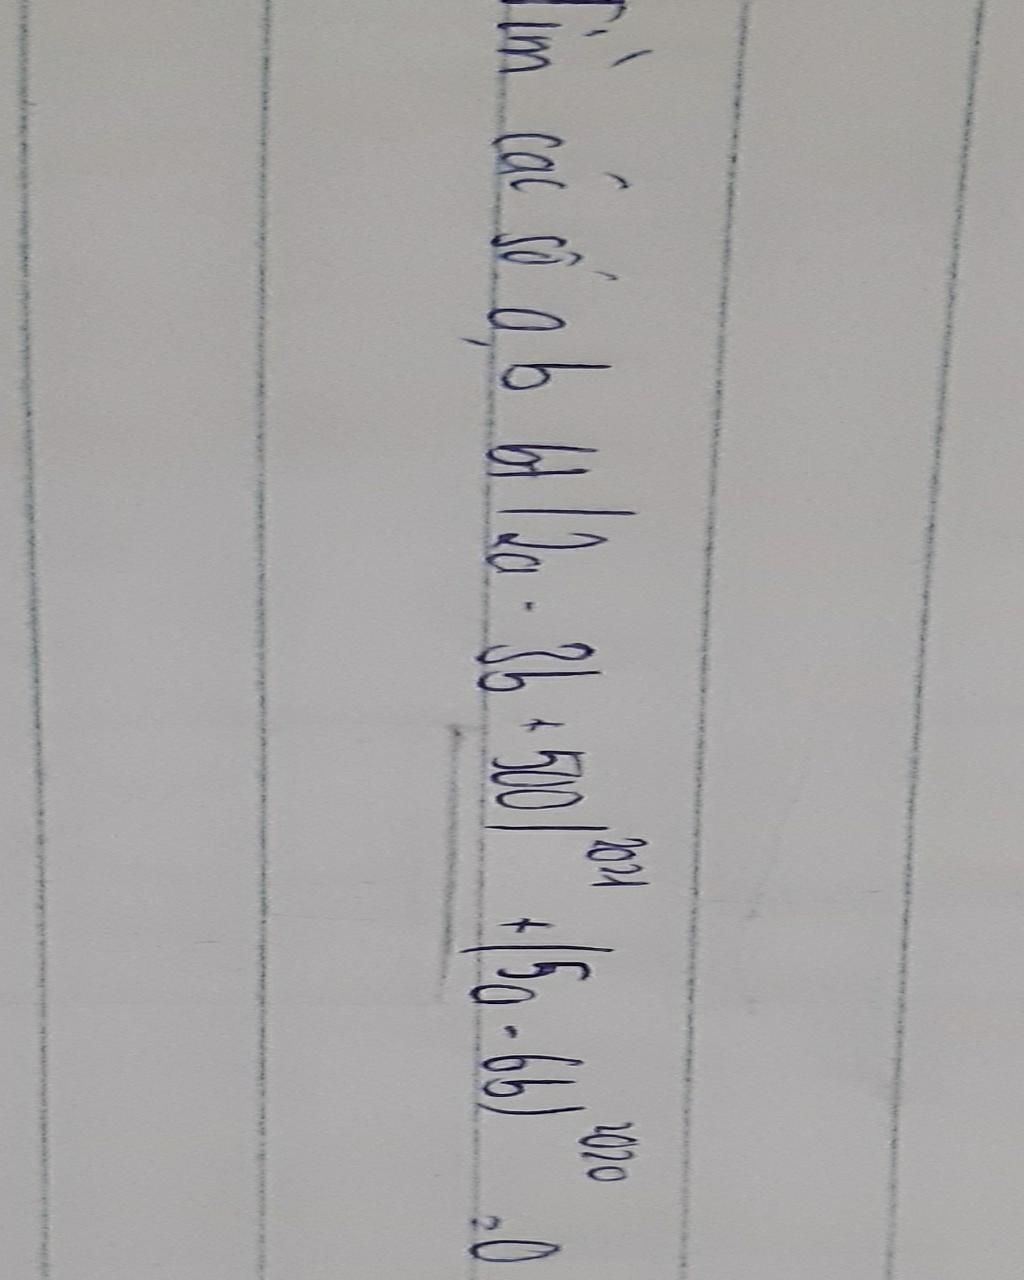 Tìm các số a, b bt |2a - 3b + 500|²⁰²¹ + (5a - 6b)²⁰²⁰ = 0